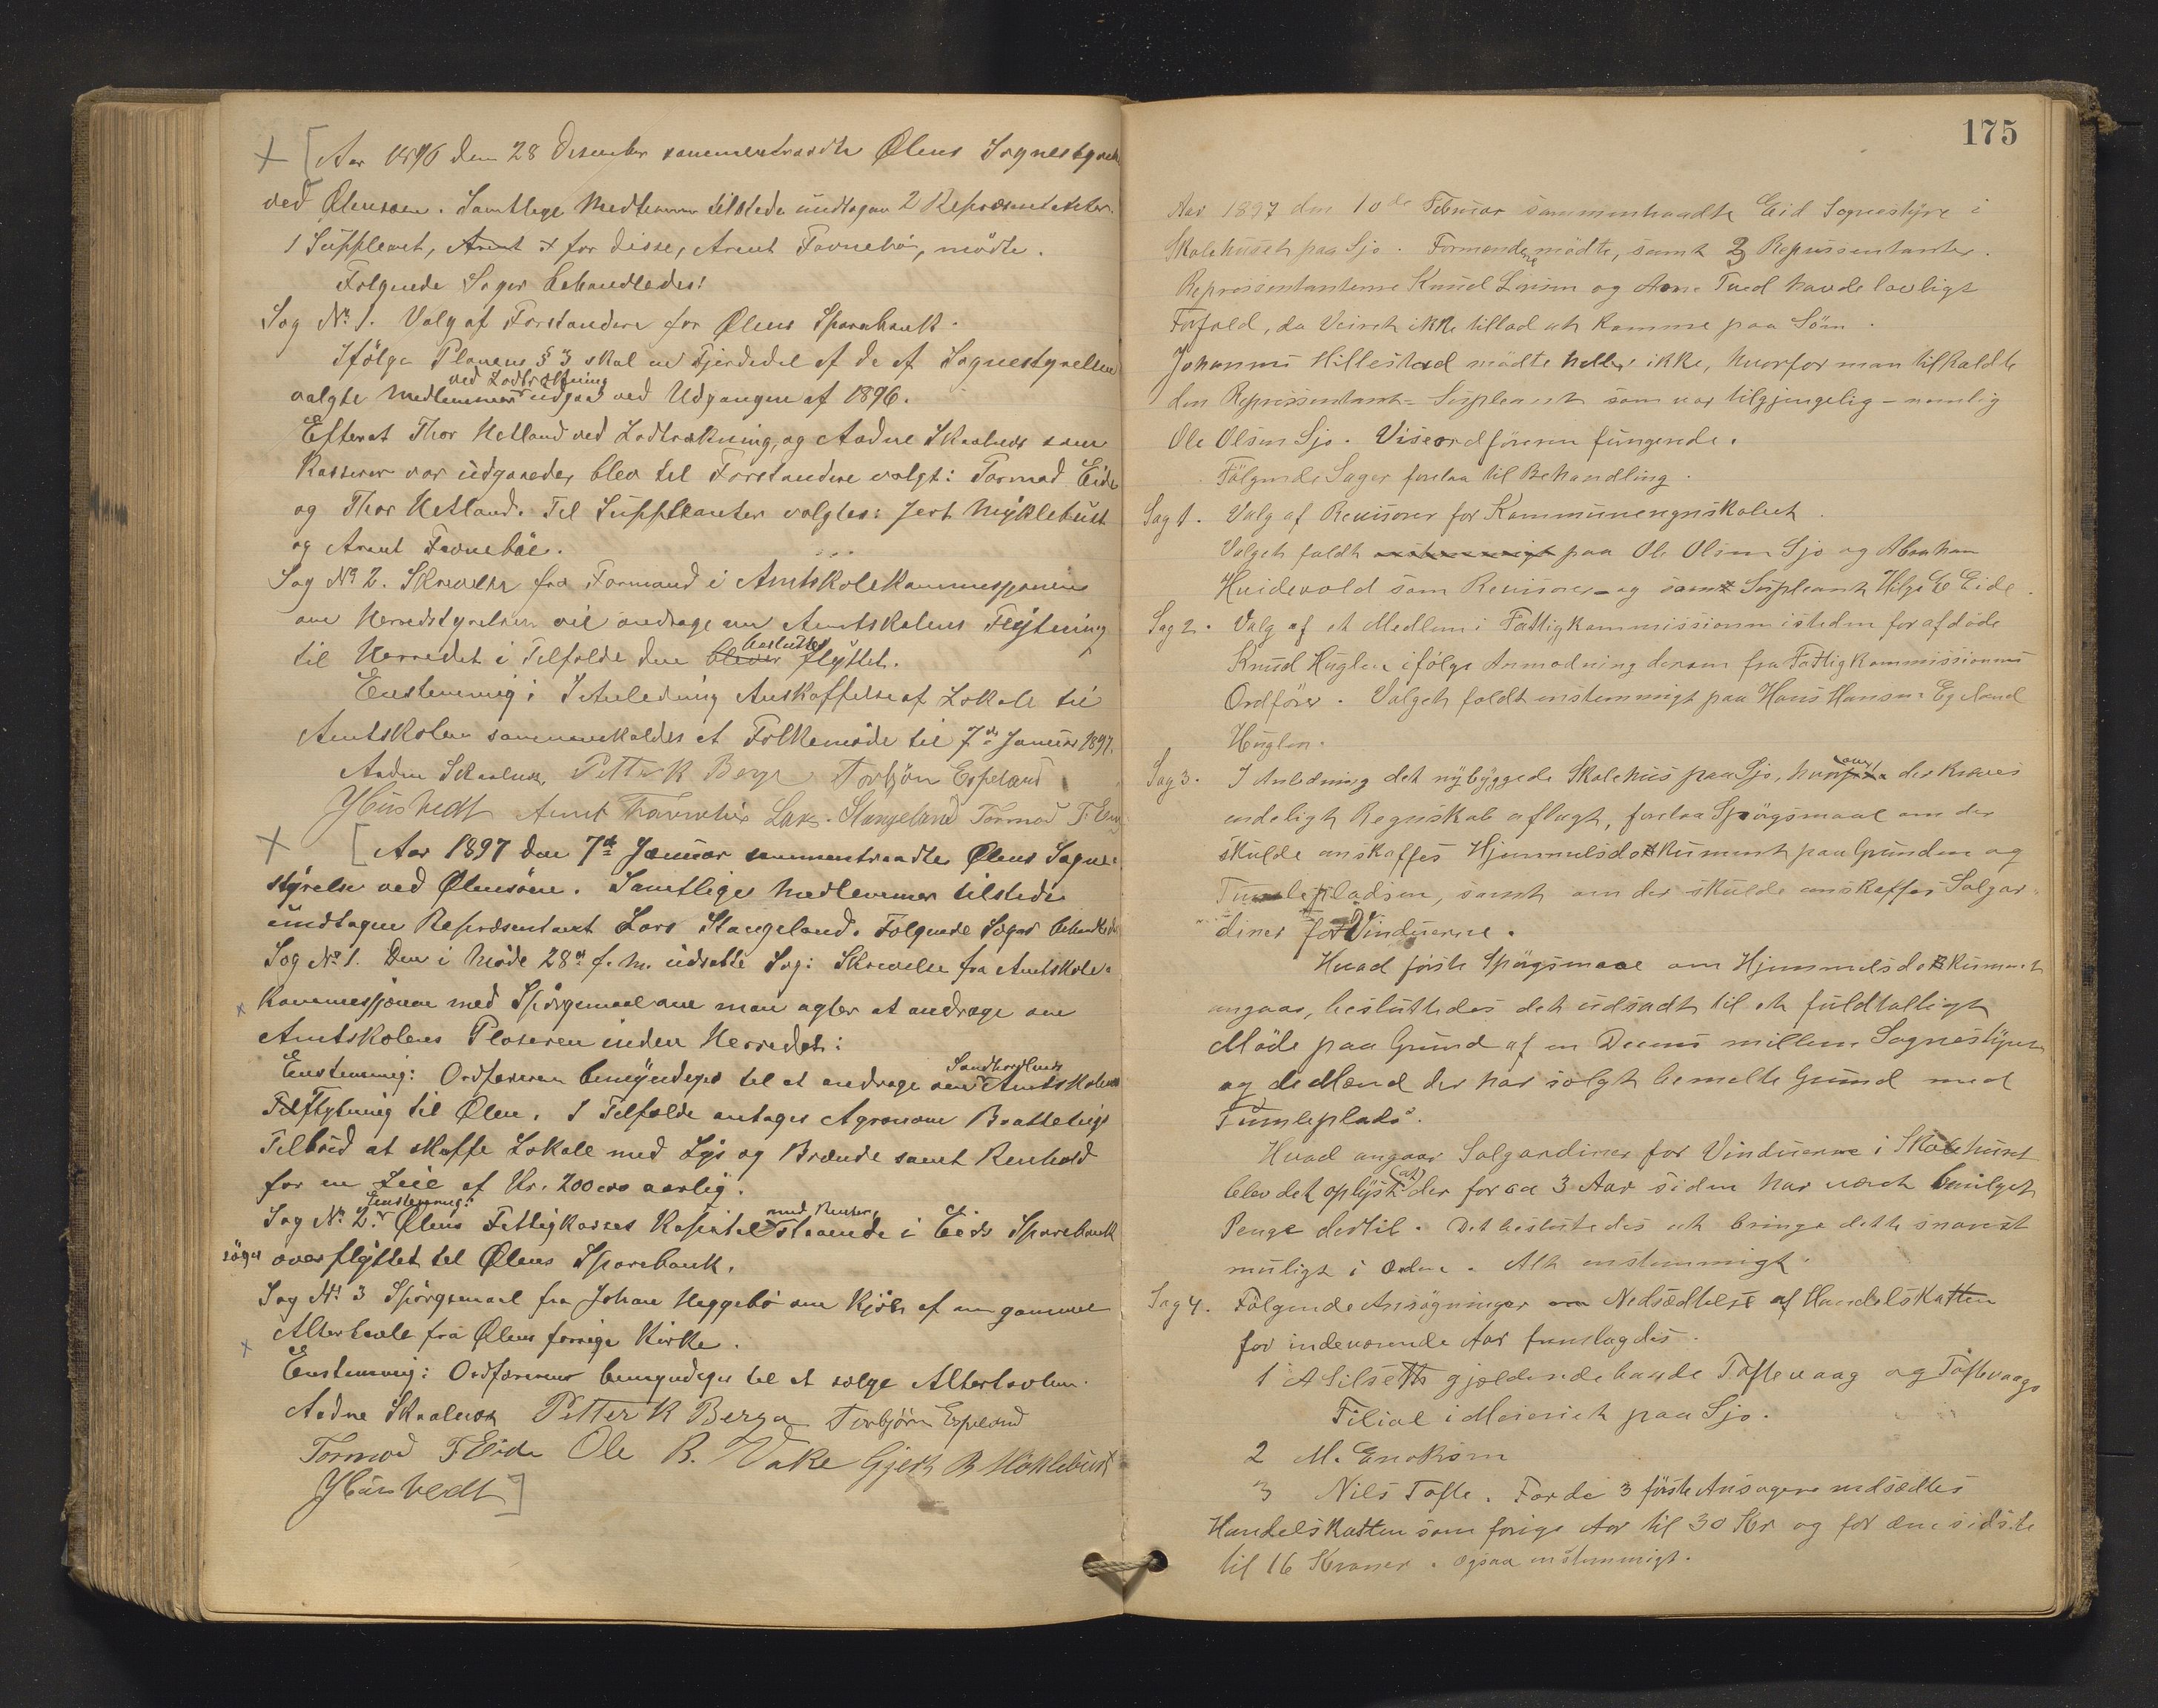 Aar 1896 den 28 Desember sammentraadte Ølens Sognestyrelse
ved Ølensøen. Samtlige Medlemmer tilstede undtagen 2 Repræsentanter.
1 Suppleant, Arent for disse, Arent Favnebø, mödte.
Følgende Sager behandledes:
Sag No. 1. Valg af Forstandere for Ølens Sparebank.
Ifölge Planens § 3 skal en Fjerdedel af de af Sognestyrelsen
ved Lodtrækning
valgte Medlemmer udgaa ved Udgangen af 1896.
Efterat Thor Hetland ved Lodtrækning, og Aadne Skaalnes som
Kasserer var udgaaede, blev til Forstandere valgt: Tormod Eide
og Thor Hetland. Til Suppleanter valgtes: Jert Myklebust
og Arent Favnebøe.
Sag No 2. Skrivelse fra Formand i Amtskolekommissjonen
om Herredstyrelsen vil andrage om Amtskolens Flytning
besluttes
til Herredet i Tilfælde den bliver flyttet.
Enstemmig: I Anledning Anskaffelse af Lokale til
Amtskolen sammenkaldes et Folkemøde til 7de Januar 1897.
Aadne Skaalnes Petter K Berge Torbjörn Espeland
Arent Favnebø Lars Stangeland Tormod T. Eide
Aar 1897 den 7de Januar sammentraadte Ølens Sogne-
styrelse ved Ølensøen. Samtlige Medlemmer tilstede
undtagen Repræsentant Lars Stangeland. Følgende Sager behandledes
Sag No 1. Den i Møde 28de f. M. udsatte Sag: Skrivelse fra Amtskole-
kommissjonen med Spörgsmaal om man agter at andrage om
Amtskolens Plaseren inden Herredet:
Søndhordlands
Enstemmig: Ordføreren bemyndiges til at andrage om Amtskolens
Flytning til Ølen. I Tilfælde antages Agronom Bratteteigs
Tilbud at skaffe Lokale med Lys og Brænde samt Renhold
for en Leie af Kr. 200 aarlig.
Enstemmig: med Renter,
Sag No. 2. Ølens Fattigkasses Kapital staaende i Eids Sparebank
søges overflyttet til Ølens Sparebank.
Sag No 3 Spörgsmaal fra Johan Heggebø om Kjöb af en gammel
Altertavle fra Ølens forrige Kirke.
Enstemmig: Ordføreren bemyndiges til at sælge Altertavlen.
Aadne Skaalnes Petter K Berge Torbjörn Espeland
Tormod T Eide Ole B. Vake Gjert B Müklebust
175
Aar 1897 den 10de Februar sammentraadte Eid Sognestyre i
Skolehuset paa Sjo. Formændene mödte, samt 3 Repræsentanter.
Repræsentanterne Knud Larsen og Arne Tved havde lovligt
Forfald, da Veiret ikke tillod at komme paa Søen.
Johannes Hillestad mödte heller ikke, hvorfor man tilkaldte
den Repræsentant-Supleant som var tilgjengelig - nemlig
Ole Olsen Sjo. Viseordföreren fungerede.
Fölgende Sager forelaa til Behandling.
Sag 1. Valg af Revisorer for Kommuneregnskabet.
Valget faldt enstemmigt paa Ole Olsen Sjo og Abraham
Hvidevold som Revisorer og som Supleant Helge E Eide.
Sag 2. Valg af et Medlem i Fattigkommissionen istedenfor afdöde
Knud Huglen ifölge Anmodning derom fra Fattigkommissionens
Ordförer. Valget faldt enstemmigt paa Hans Hansen Egeland
Huglen.
Sag 3. I Anledning det nybyggede Skolehus paa Sjo, hvorover der kræves
endeligt Regnskab aflagt, forelaa Spörgsmaal om der
skulde anskaffes Hjemmelsdokument paa Grunden og
Tumlepladsen, samt om der skulde anskaffes Solgar-
diner for Vinduerne.
Hvad förste Spörgsmaal om Hjemmelsdokument
angaar, besluttedes det udsadt til et fuldtalligt
Möde paa Grund af en Deens mellem Sognestyret
og de Mænd der har solgt bemelte Grund med
Tumleplads.
Hvad angaar Solgardiner for Vinduerne i Skolehuset
(at)
blev det oplyst der for ca 3 Aar siden har været bevilget
Penge dertil. Det besluttedes at bringe dette snarest
muligt i Orden. Alt enstemmigt.
Sag 4. Fölgende Ansögninger om Nedsædtelse af Handelskatten
for indeværende Aar fremlagdes.
1 A Silseth gjældende baade Toftevaag og Toftevaags
Filial i Meieriet paa Sjo.
2 M. Enoksen
3 Nils Tofte. For de 3 förste Ansögere nedsædtes
Handelskatten som forige Aar til 30 Kr og for den sidste
til 16 Kroner. Ogsaa enstemmigt.